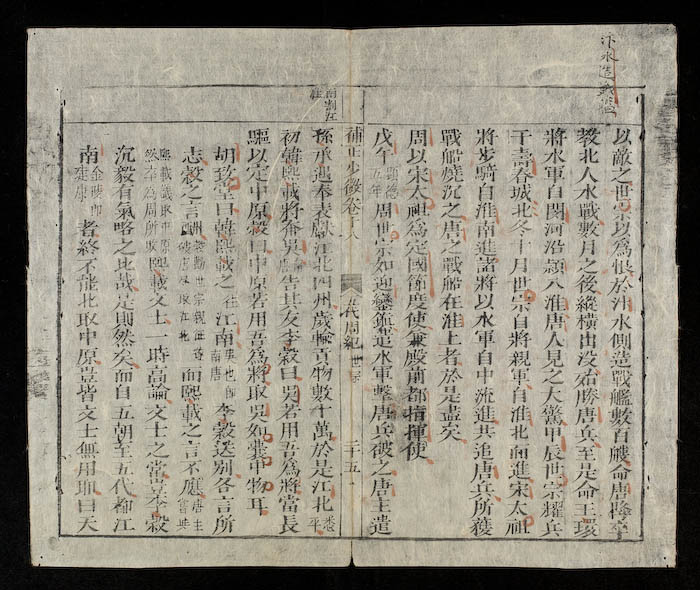 汴水造戰艦
以敵之世宗以為恨於汴水側造戰艦數百艘命唐降卒
教北人水戰數月之後縱橫出没殆勝唐兵至是命王環
將水軍自閔河沿潁入淮唐人見之大驚甲辰世宗耀兵
于壽春城北冬十月世宗自將親軍自淮北而進宋太祖
將步騎自淮南進諸將以水軍自中流進共追唐兵所獲
戰船燒沉之唐之戰船在淮上者於是盡矣
周以宋太祖為定國節度使兼殿前都指揮使
戊午顯德五年周世宗如迎鑾鎮遣水軍擊唐兵破之唐主遣
補正少微卷十八 五代周紀 世宗 二十五
南割江
孫承遇奉表獻江北四州歲輸貢物數十萬於是江北悉平
初韓熙載將奔吳唐告其友李穀曰吳若用吾為將當長
驅以定中原穀曰中原若用吾為將取吳如囊中物耳
胡致堂曰韓熙載之往江南吳也即南唐李穀送別各言所
志穀之言酬而熙載之言不應唐主嘗與
熙載議取中原然卒為周所敗熙載文士一時高論文士之常豈李穀
沉毅有氣略之比哉是則然矣而自五朝至五代都江
南金陵即建康者終不能北取中原豈皆文士無用耶曰天